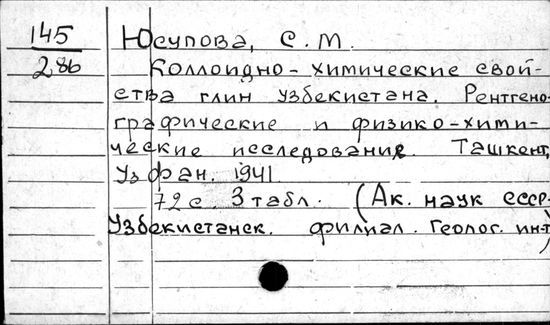 145
286
Юсупова, С. М.
Коллоидно-химические свой-
ства глин Узбекистана. Рентгено-
графические и физико-хими-
ческие исследования. Ташкент,
Узфан. 1941.
72 с. 3 табл. (Ак. наук СССР.
Узбекистанск. филиал. Геолог. ин-т)